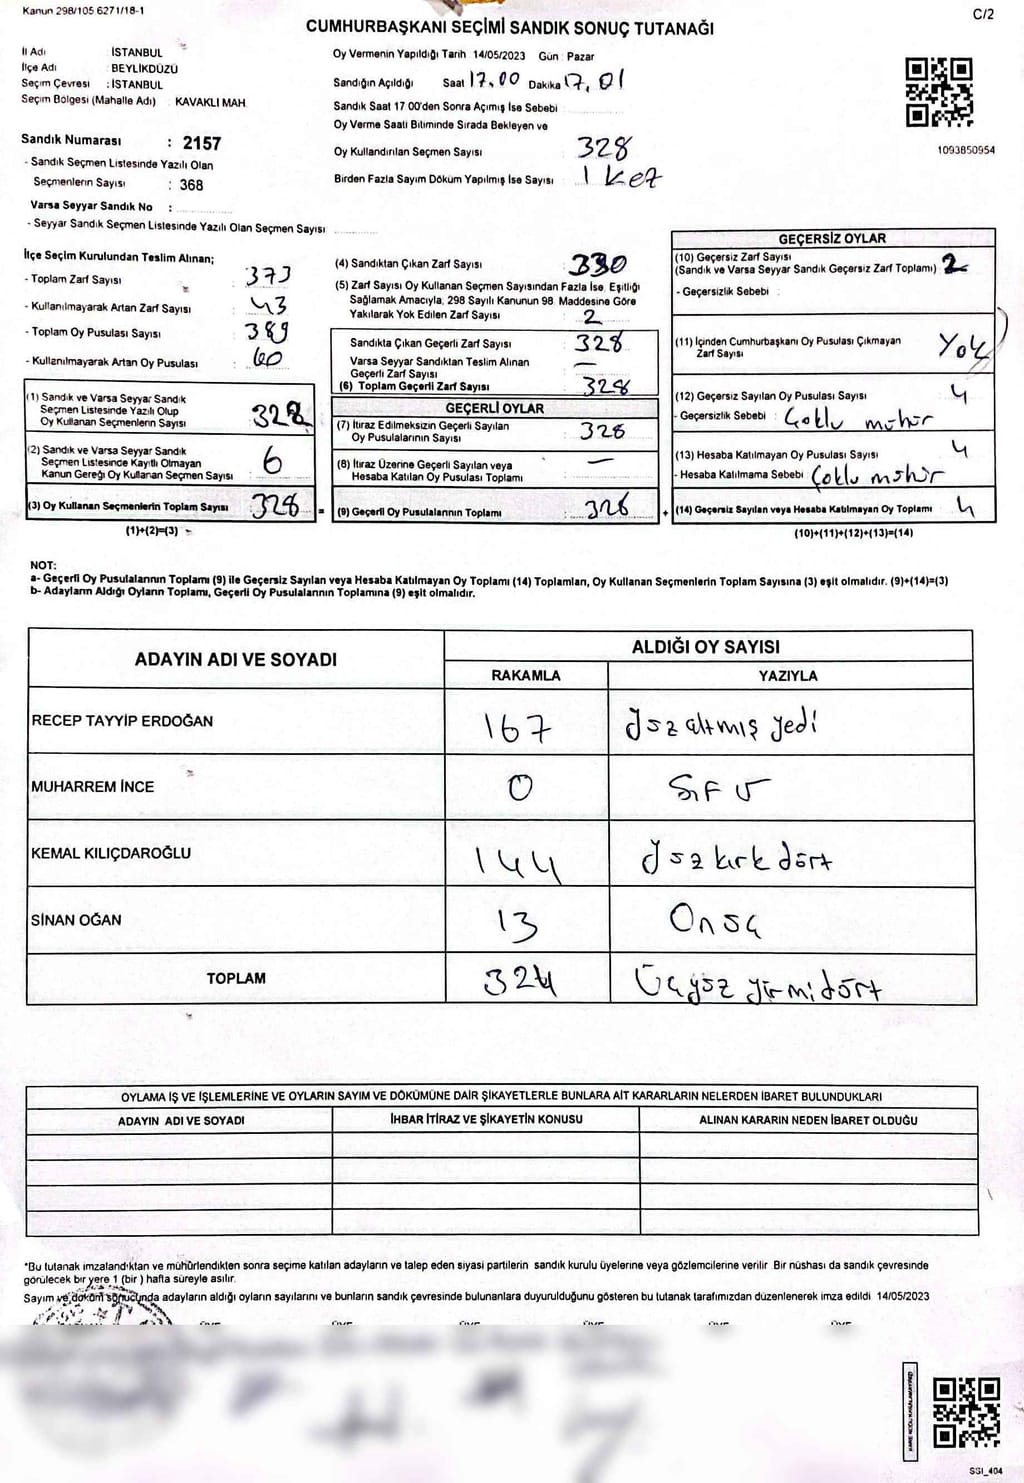 Kanun 298/105 6271/18-1
C/2
CUMHURBAŞKANI SEÇİMİ SANDIK SONUÇ TUTANAĞI
İl Adı : İSTANBUL
İlçe Adı : BEYLİKDÜZÜ
Seçim Çevresi : İSTANBUL
Seçim Bölgesi (Mahalle Adı) : KAVAKLI MAH.
Sandık Numarası : 2157
- Sandık Seçmen Listesinde Yazılı Olan
Seçmenlerin Sayısı : 368
Varsa Seyyar Sandık No :
- Seyyar Sandık Seçmen Listesinde Yazılı Olan Seçmen Sayısı
Oy Vermenin Yapıldığı Tarih 14/05/2023 Gün : Pazar
Sandığın Açıldığı Saat 17.00 Dakika 17,01
Sandık Saat 17 00'den Sonra Açımış İse Sebebi
Oy Verme Saati Bitiminde Sırada Bekleyen ve
Oy Kullandırılan Seçmen Sayısı 328
Birden Fazla Sayım Döküm Yapılmış İse Sayısı 1 kez
1093850954
İlçe Seçim Kurulundan Teslim Alınan;
- Toplam Zarf Sayısı : 373
- Kullanılmayarak Artan Zarf Sayısı : 43
- Toplam Oy Pusulası Sayısı : 389
- Kullanılmayarak Artan Oy Pusulası : 60
(1) Sandık ve Varsa Seyyar Sandık
Seçmen Listesinde Yazılı Olup
Oy Kullanan Seçmenlerin Sayısı 322
(2) Sandık ve Varsa Seyyar Sandık
Seçmen Listesinde Kayıtlı Olmayan
Kanun Gereği Oy Kullanan Seçmen Sayısı 6
(3) Oy Kullanan Seçmenlerin Toplam Sayısı 328 =
(1)+(2)=(3)
(4) Sandıktan Çıkan Zarf Sayısı 330
(5) Zarf Sayısı Oy Kullanan Seçmen Sayısından Fazla İse, Eşitliği
Sağlamak Amacıyla, 298 Sayılı Kanunun 98. Maddesine Göre
Yakılarak Yok Edilen Zarf Sayısı 2
Sandıkta Çıkan Geçerli Zarf Sayısı 328
Varsa Seyyar Sandıktan Teslim Alınan
Geçerli Zarf Sayısı —
(6) Toplam Geçerli Zarf Sayısı 328
GEÇERLİ OYLAR
(7) İtiraz Edilmeksizin Geçerli Sayılan
Oy Pusulalarının Sayısı 328
(8) İtiraz Üzerine Geçerli Sayılan veya
Hesaba Katılan Oy Pusulası Toplamı —
(9) Geçerli Oy Pusulalarının Toplamı +
GEÇERSİZ OYLAR
(10) Geçersiz Zarf Sayısı
(Sandık ve Varsa Seyyar Sandık Geçersiz Zarf Toplamı) 2
- Geçersizlik Sebebi :
(11) İçinden Cumhurbaşkanı Oy Pusulası Çıkmayan
Zarf Sayısı Yok
(12) Geçersiz Sayılan Oy Pusulası Sayısı 4
- Geçersizlik Sebebi : Çoklu mühür
(13) Hesaba Katılmayan Oy Pusulası Sayısı 4
- Hesaba Katılmama Sebebi : Çoklu mühür
(14) Geçersiz Sayılan veya Hesaba Katılmayan Oy Toplamı 4
(10)+(11)+(12)+(13)=(14)
NOT:
a- Geçerli Oy Pusulalarının Toplamı (9) ile Geçersiz Sayılan veya Hesaba Katılmayan Oy Toplamı (14) Toplamları, Oy Kullanan Seçmenlerin Toplam Sayısına (3) eşit olmalıdır. (9)+(14)=(3)
b- Adayların Aldığı Oyların Toplamı, Geçerli Oy Pusulalarının Toplamına (9) eşit olmalıdır.
ADAYIN ADI VE SOYADI
ALDIĞI OY SAYISI
RAKAMLA YAZIYLA
RECEP TAYYİP ERDOĞAN 167 Yüzaltmış yedi
MUHARREM İNCE 0 Sıfır
KEMAL KILIÇDAROĞLU 144 Yüz kırk dört
SİNAN OĞAN 13 Onüç
TOPLAM 324 Üçyüz yirmidört
OYLAMA İŞ VE İŞLEMLERİNE VE OYLARIN SAYIM VE DÖKÜMÜNE DAİR ŞİKAYETLERLE BUNLARA AİT KARARLARIN NELERDEN İBARET BULUNDUKLARI
ADAYIN ADI VE SOYADI İHBAR İTİRAZ VE ŞİKAYETİN KONUSU ALINAN KARARIN NEDEN İBARET OLDUĞU
*Bu tutanak imzalandıktan ve mühürlendikten sonra seçime katılan adayların ve talep eden siyasi partilerin sandık kurulu üyelerine veya gözlemcilerine verilir. Bir nüshası da sandık çevresinde
görülecek bir yere 1 (bir ) hafta süreyle asılır.
Sayım ve döküm sonucunda adayların aldığı oyların sayılarını ve bunların sandık çevresinde bulunanlara duyurulduğunu gösteren bu tutanak tarafımızdan düzenlenerek imza edildi 14/05/2023
SSI_404